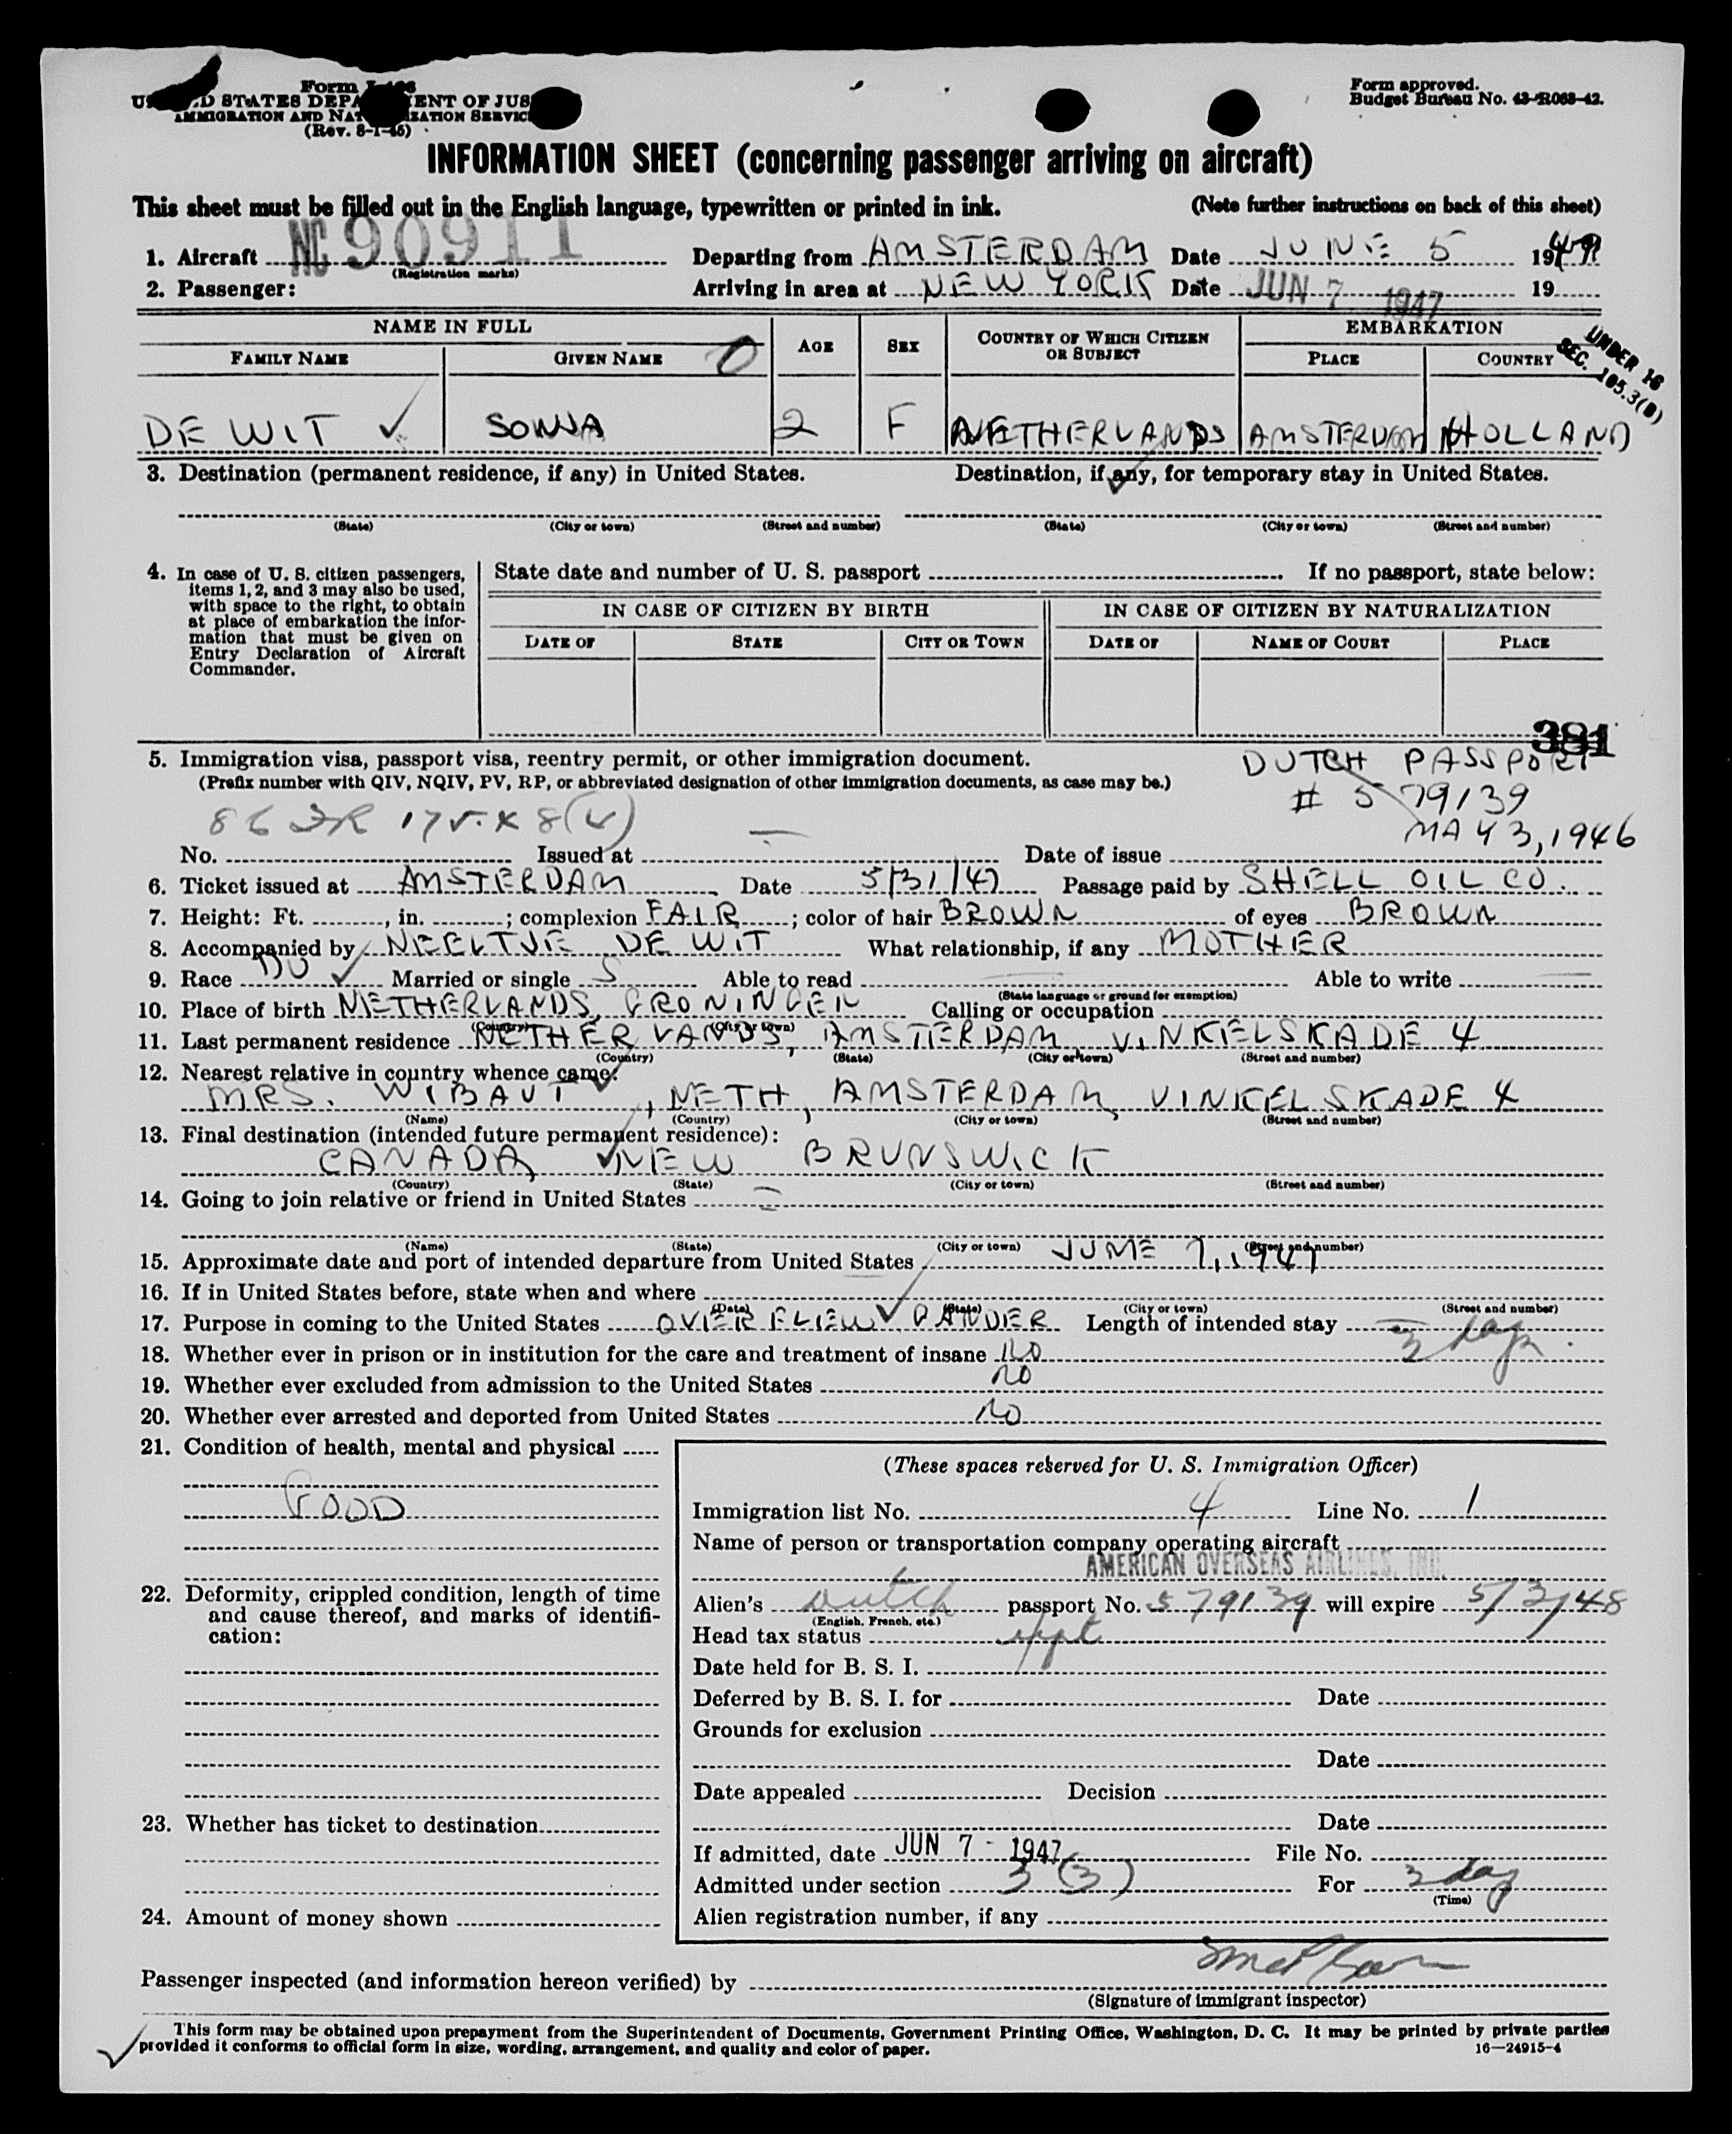 Form I-466
UNITED STATES DEPARTMENT OF JUSTICE
IMMIGRATION AND NATURALIZATION SERVICE
(Rev. 8-1-45)
Form approved.
Budget Bureau No. 43-R063-42.
INFORMATION SHEET (concerning passenger arriving on aircraft)
This sheet must be filled out in the English language, typewritten or printed in ink. (Note further instructions on back of this sheet)
1. Aircraft NC 90911 Departing from AMSTERDAM Date JUNE 5 1947
(Registration marks)
2. Passenger: Arriving in area at NEW YORK Date JUN 7 1947 19
NAME IN FULL AGE SEX COUNTRY OF WHICH CITIZEN OR SUBJECT EMBARKATION
FAMILY NAME GIVEN NAME PLACE COUNTRY
0
UNDER 16
SEC. 105.3(B)
DE WIT ✓ SONJA 2 F NETHERLANDS AMSTERDAM HOLLAND
3. Destination (permanent residence, if any) in United States. Destination, if any, for temporary stay in United States.
(State) (City or town) (Street and number) (State) (City or town) (Street and number)
4. In case of U. S. citizen passengers, items 1, 2, and 3 may also be used, with space to the right, to obtain at place of embarkation the information that must be given on Entry Declaration of Aircraft Commander.
State date and number of U. S. passport If no passport, state below:
IN CASE OF CITIZEN BY BIRTH IN CASE OF CITIZEN BY NATURALIZATION
DATE OF STATE CITY OR TOWN DATE OF NAME OF COURT PLACE
381
5. Immigration visa, passport visa, reentry permit, or other immigration document. DUTCH PASSPORT
(Prefix number with QIV, NQIV, PV, RP, or abbreviated designation of other immigration documents, as case may be.) # 579139
8 CFR 175.X 8(v) MAY 3, 1946
No. Issued at Date of issue
6. Ticket issued at AMSTERDAM Date 5/31/47 Passage paid by SHELL OIL CO.
7. Height: Ft. , in. ; complexion FAIR ; color of hair BROWN of eyes BROWN
8. Accompanied by NEELTJE DE WIT What relationship, if any MOTHER
9. Race DU ✓ Married or single S Able to read Able to write
(State language or ground for exemption)
10. Place of birth NETHERLANDS, GRONINGEN Calling or occupation
(Country) (City or town)
11. Last permanent residence NETHERLANDS, AMSTERDAM, VINKELSKADE 4
(Country) (State) (City or town) (Street and number)
12. Nearest relative in country whence came:
MRS. WIBAUT, NETH, AMSTERDAM, VINKELSKADE 4
(Name) (Country) (City or town) (Street and number)
13. Final destination (intended future permanent residence):
CANADA ✓ NEW BRUNSWICK
(Country) (State) (City or town) (Street and number)
14. Going to join relative or friend in United States
(Name) (State) (City or town) (Street and number)
15. Approximate date and port of intended departure from United States JUNE 7, 1947
16. If in United States before, state when and where
(Date) (State) (City or town) (Street and number)
17. Purpose in coming to the United States Length of intended stay 3 days.
18. Whether ever in prison or in institution for the care and treatment of insane NO
19. Whether ever excluded from admission to the United States NO
20. Whether ever arrested and deported from United States NO
21. Condition of health, mental and physical
GOOD
22. Deformity, crippled condition, length of time and cause thereof, and marks of identification:
23. Whether has ticket to destination
24. Amount of money shown
(These spaces reserved for U. S. Immigration Officer)
Immigration list No. 4 Line No. 1
Name of person or transportation company operating aircraft
AMERICAN OVERSEAS AIRLINES, INC.
Alien's Dutch passport No. 579139 will expire 5/3/48
(English, French, etc.)
Head tax status
Date held for B. S. I.
Deferred by B. S. I. for Date
Grounds for exclusion
Date
Date appealed Decision
Date
If admitted, date JUN 7 - 1947 File No.
Admitted under section 3 (3) For 3 days
(Time)
Alien registration number, if any
Passenger inspected (and information hereon verified) by
(Signature of immigrant inspector)
This form may be obtained upon prepayment from the Superintendent of Documents, Government Printing Office, Washington, D. C. It may be printed by private parties
provided it conforms to official form in size, wording, arrangement, and quality and color of paper. 16—24915-4